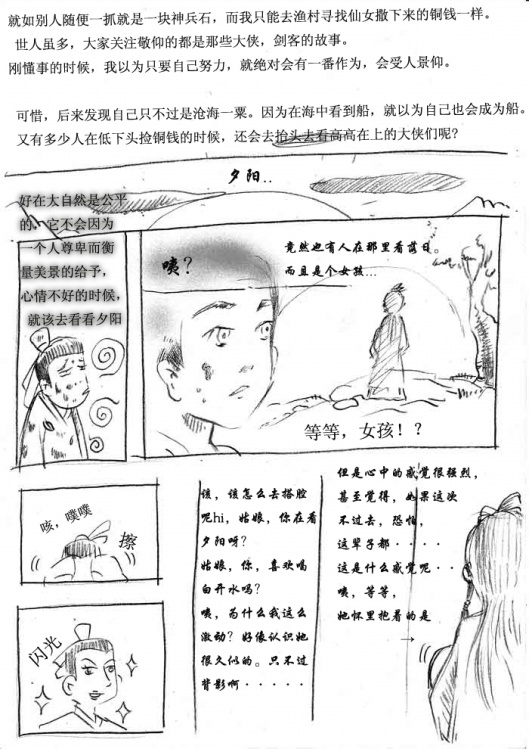 就如别人随便一抓就是一块神兵石，而我只能去渔村寻找仙女撒下来的铜钱一样。
世人虽多，大家关注敬仰的都是那些大侠，剑客的故事。
刚懂事的时候，我以为只要自己努力，就绝对会有一番作为，会受人景仰。
可惜，后来发现自己只不过是沧海一粟。因为在海中看到船，就以为自己也会成为船。
又有多少人在低下头捡铜钱的时候，还会去抬头去看高高在上的大侠们呢？
夕阳..
好在太自然是公平
的，它不会因为
一个人尊卑而衡
量美景的给予，
心情不好的时候，
就该去看看夕阳
咦？
竟然也有人在那里看落日。
而且是个女孩...
等等，女孩！？
咳，噗噗
擦
闪光
该，该怎么去搭腔
呢hi，姑娘，你在看
夕阳呀？
姑娘，你，喜欢喝
白开水吗？
咦，为什么我这么
激动？好像认识她
很久似的。只不过
背影啊·····
但是心中的感觉很强烈，
甚至觉得，如果这次
不过去，恐怕，
这辈子都····
这是什么感觉呢··
咦，等等，
她怀里抱着的是